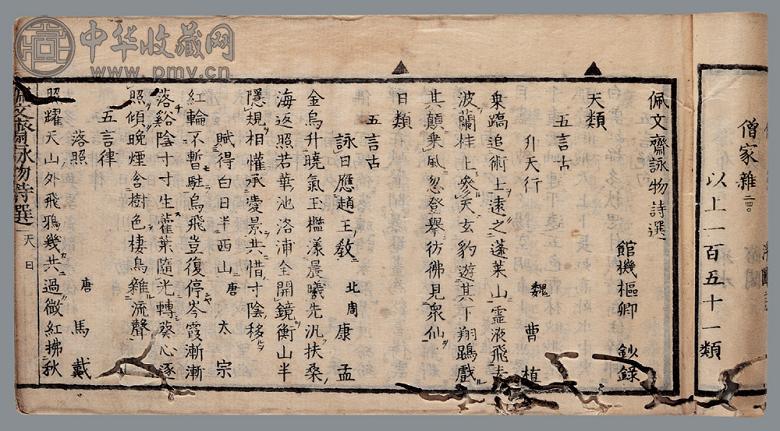 中华收藏网
www.pmv.cn
僧家雜
以上一百五十一類
佩文齋詠物詩選
館機樞卿 鈔錄
天類
五言古
升天行
魏 曹植
乗蹻追術士遠之蓬莱山霊液飛素
波蘭桂上參天玄豹遊其下翔鵾戲
其顛乗風忽登舉彷彿見衆仙
日類
五言古
詠日應趙王教
北周 康孟
金烏升曉氣玉檻漾晨曦先汎扶桑
海返照若華池洛浦全開鏡衡山半
隱規相懽承愛景共惜寸陰移
賦得白日半西山
唐 太宗
紅輪不暫駐烏飛豈復停岑霞漸漸
落谿陰寸寸生藿葉隨光轉葵心逐
照傾晚煙含樹色棲鳥雜流聲
五言律
落照
唐 馬戴
照耀天山外飛鴉幾共過微紅拂秋
佩文齋詠物詩選 天 日